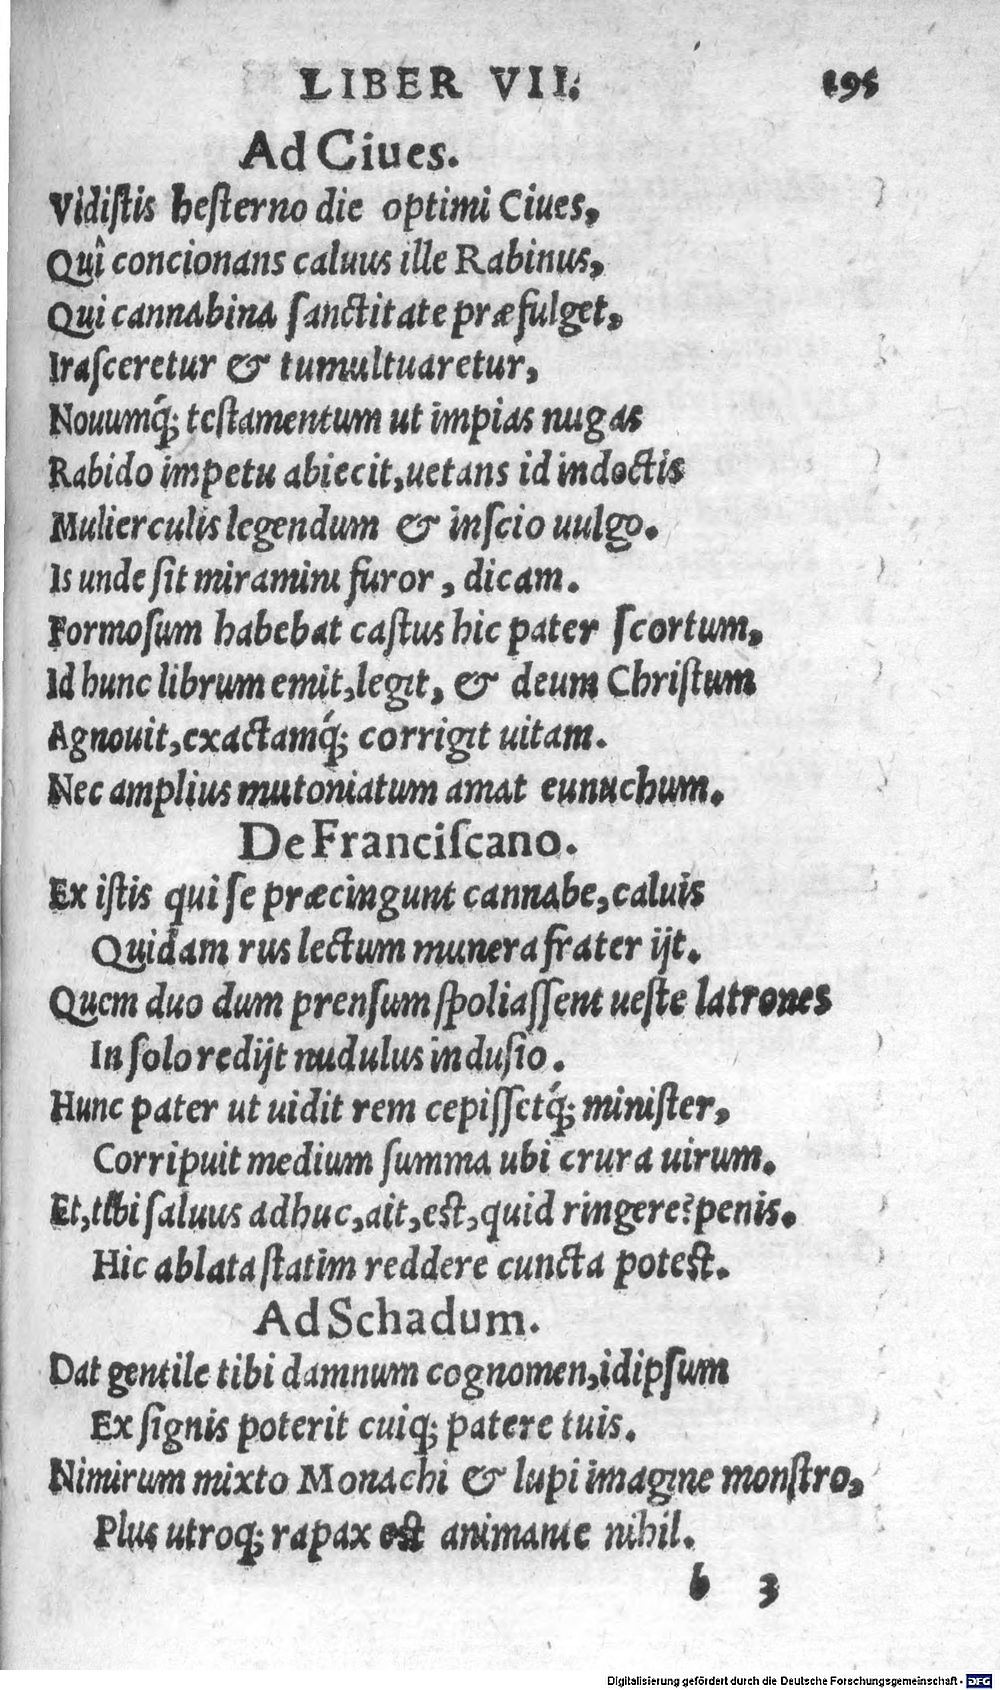 LIBER VII. 195
Ad Ciues.
Vidiſtis heſterno die optimi Ciues,
Quî concionans caluus ille Rabinus,
Qui cannabina ſanctitate præfulget,
Iraſceretur & tumultuaretur,
Nouumq́; teſtamentum ut impias nugas
Rabido impetu abiecit, uetans id indoctis
Mulierculis legendum & inſcio uulgo.
Is unde ſit miramini furor, dicam.
Formoſum habebat caſtus hic pater ſcortum,
Id hunc librum emit, legit, & deum Chriſtum
Agnouit, exactamq́; corrigit uitam.
Nec amplius mutoniatum amat eunuchum.
De Franciſcano.
Ex iſtis qui ſe præcingunt cannabe, caluis
Quidam rus lectum munera frater ijt.
Quem duo dum prenſum ſpoliaſſent ueſte latrones
In ſolo redijt nudulus induſio.
Hunc pater ut uidit rem cepiſſetq́; miniſter,
Corripuit medium ſumma ubi crura uirum.
Et, tibi ſaluus adhuc, ait, eſt, quid ringere? penis.
Hic ablata ſtatim reddere cuncta poteſt.
Ad Schadum.
Dat gentile tibi damnum cognomen, idipſum
Ex ſignis poterit cuiq; patere tuis.
Nimirum mixto Monachi & lupi imagine monſtro,
Plus utroq; rapax eſt animante nihil.
b 3
Digitalisierung gefördert durch die Deutsche Forschungsgemeinschaft - DFG